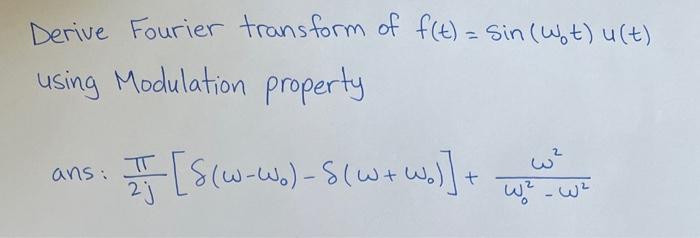 Derive Fourier transform of f(t) = sin(ω₀t) u(t)
using Modulation property
ans: π/2j [δ(ω-ω₀) - δ(ω+ω₀)] + ω²/ω₀²-ω²